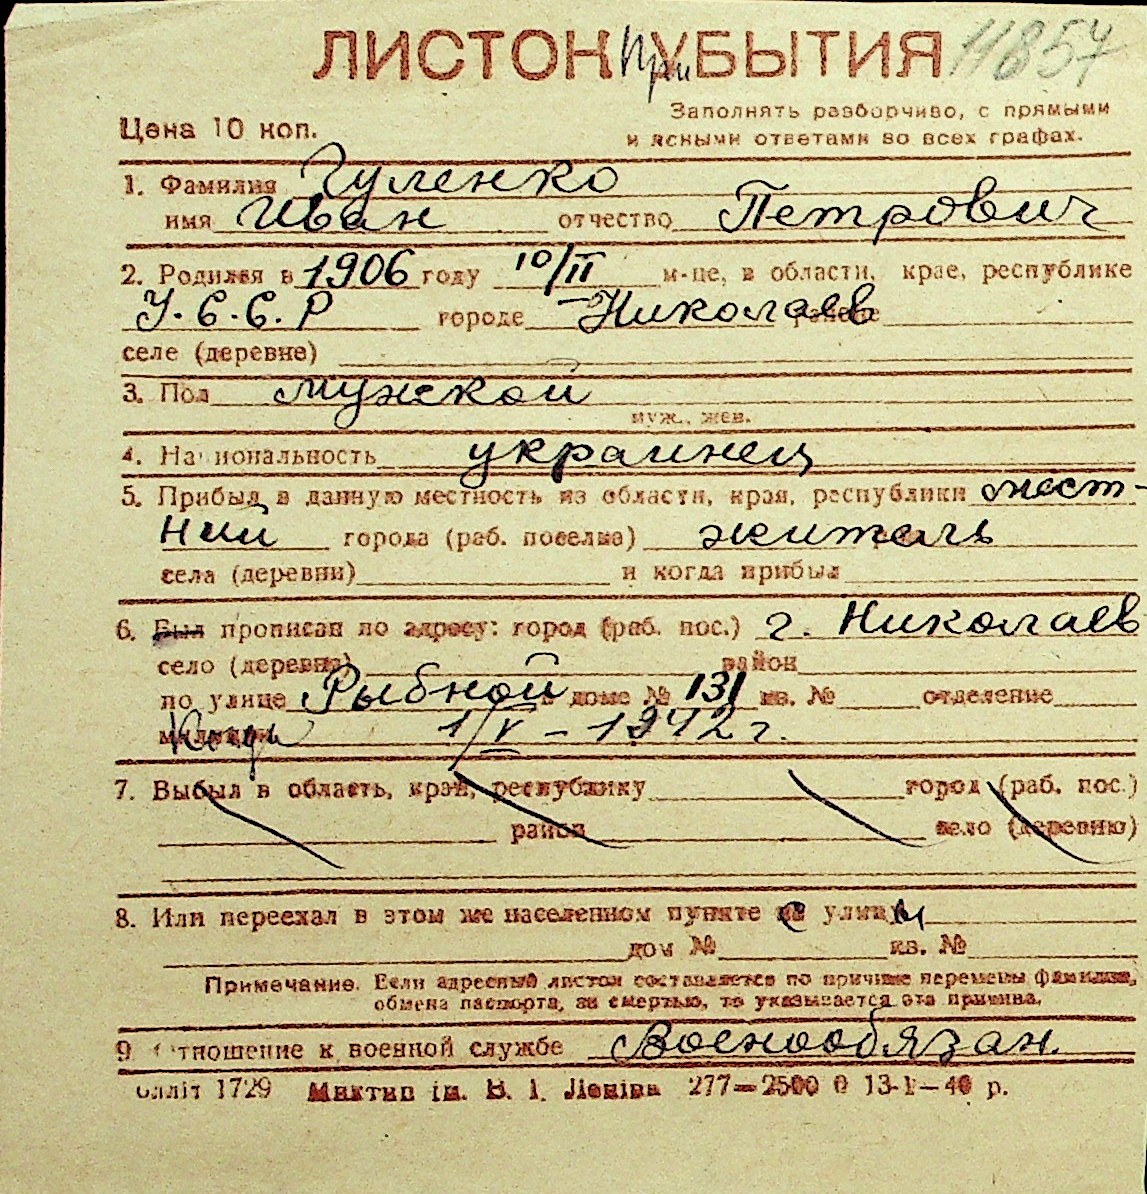 ЛИСТОК При УБЫТИЯ 11857
Цена 10 коп.
Заполнять разборчиво, с прямыми
и ясными ответами во всех графах.
1. Фамилия Гуленко
имя Иван отчество Петрович
2. Родился в 1906 году 10/II м-це, в области, крае, республике
У.С.С.Р городе Николаев районе
селе (деревне)
3. Пол мужской
муж., жен.
4. Национальность украинец
5. Прибыл в данную местность из области, края, республики мест-
ний города (раб. поселка) житель
села (деревни) и когда прибыл
6. Был прописан по адресу: город (раб. пос.) г. Николаев
село (деревня) район
по улице Рыбной в доме № 131 кв. № отделение
милиции Когда 1/V - 1942 г.
7. Выбыл в область, край, республику город (раб. пос.)
район село (деревню)
8. Или переехал в этом же населенном пункте с улицы
дом № кв. №
Примечание. Если адресный листок составляется по причине перемены фамилии,
обмена паспорта, за смертью, то указывается эта причина.
9 Отношение к военной службе Военнообязан.
1729 Миктип ім. В. І. Леніна 277—2500 0 13-I—40 р.